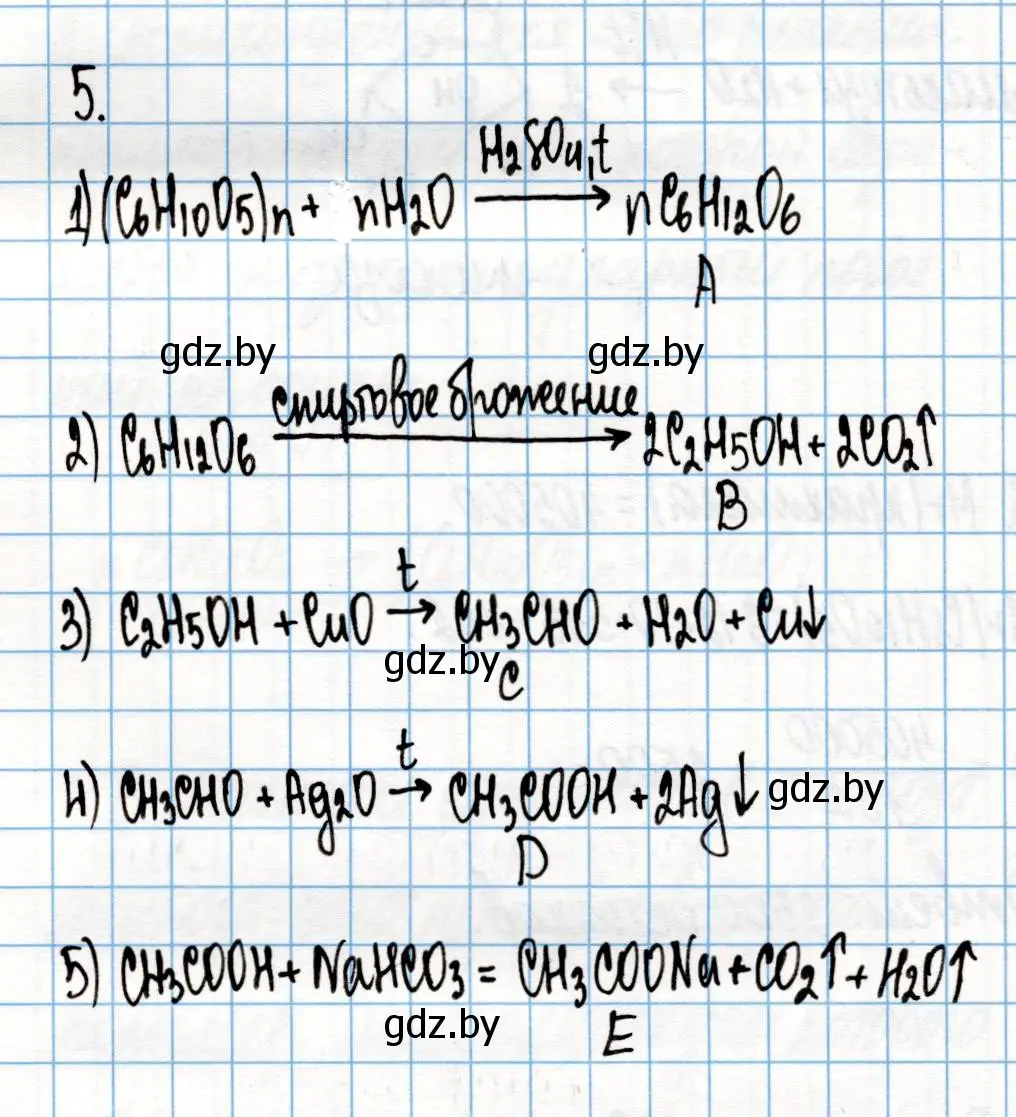 5.
H₂SO₄, t
1) (C₆H₁₀O₅)n + nH₂O → nC₆H₁₂O₆
A
gdz.by gdz.by
спиртовое брожение
2) C₆H₁₂O₆ → 2C₂H₅OH + 2CO₂↑
B
t
3) C₂H₅OH + CuO → CH₃CHO + H₂O + Cu↓
gdz.by
C
t
4) CH₃CHO + Ag₂O → CH₃COOH + 2Ag↓ gdz.by
D
5) CH₃COOH + NaHCO₃ = CH₃COONa + CO₂↑ + H₂O↑
gdz.by
E